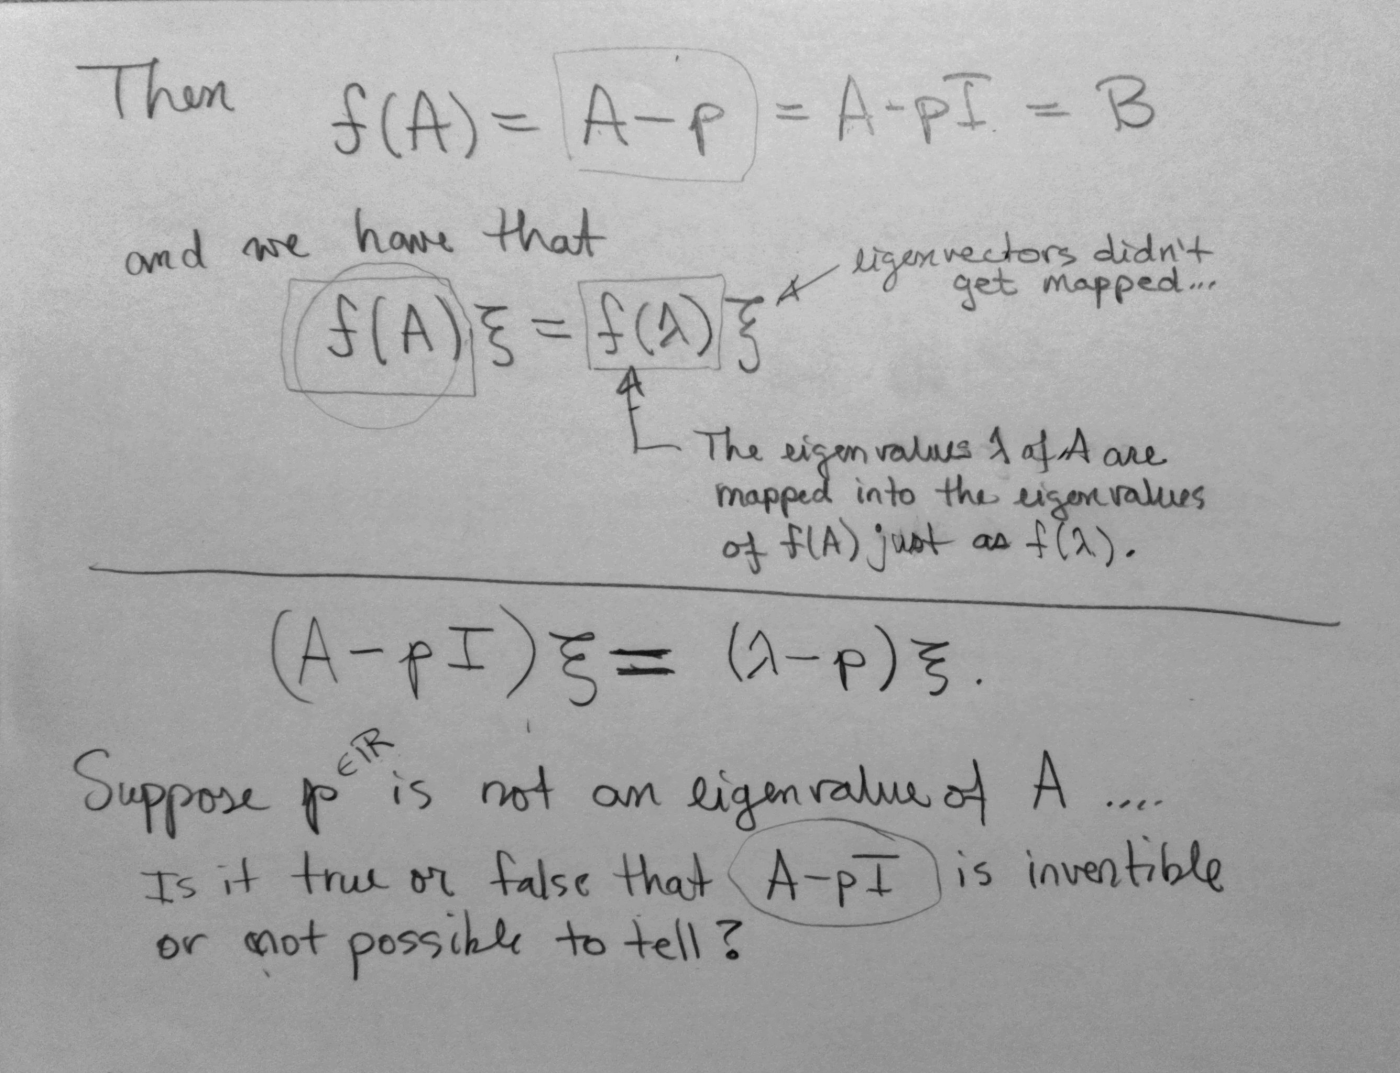 Then f(A) = A-p = A-pI = B
and we have that
eigenvectors didn't
get mapped...
f(A) ξ = f(λ) ξ
The eigenvalues λ of A are
mapped into the eigenvalues
of f(A) just as f(λ).
(A-pI) ξ = (λ-p) ξ.
Suppose p ∈ℝ is not an eigenvalue of A ....
Is it true or false that A-pI is invertible
or not possible to tell?